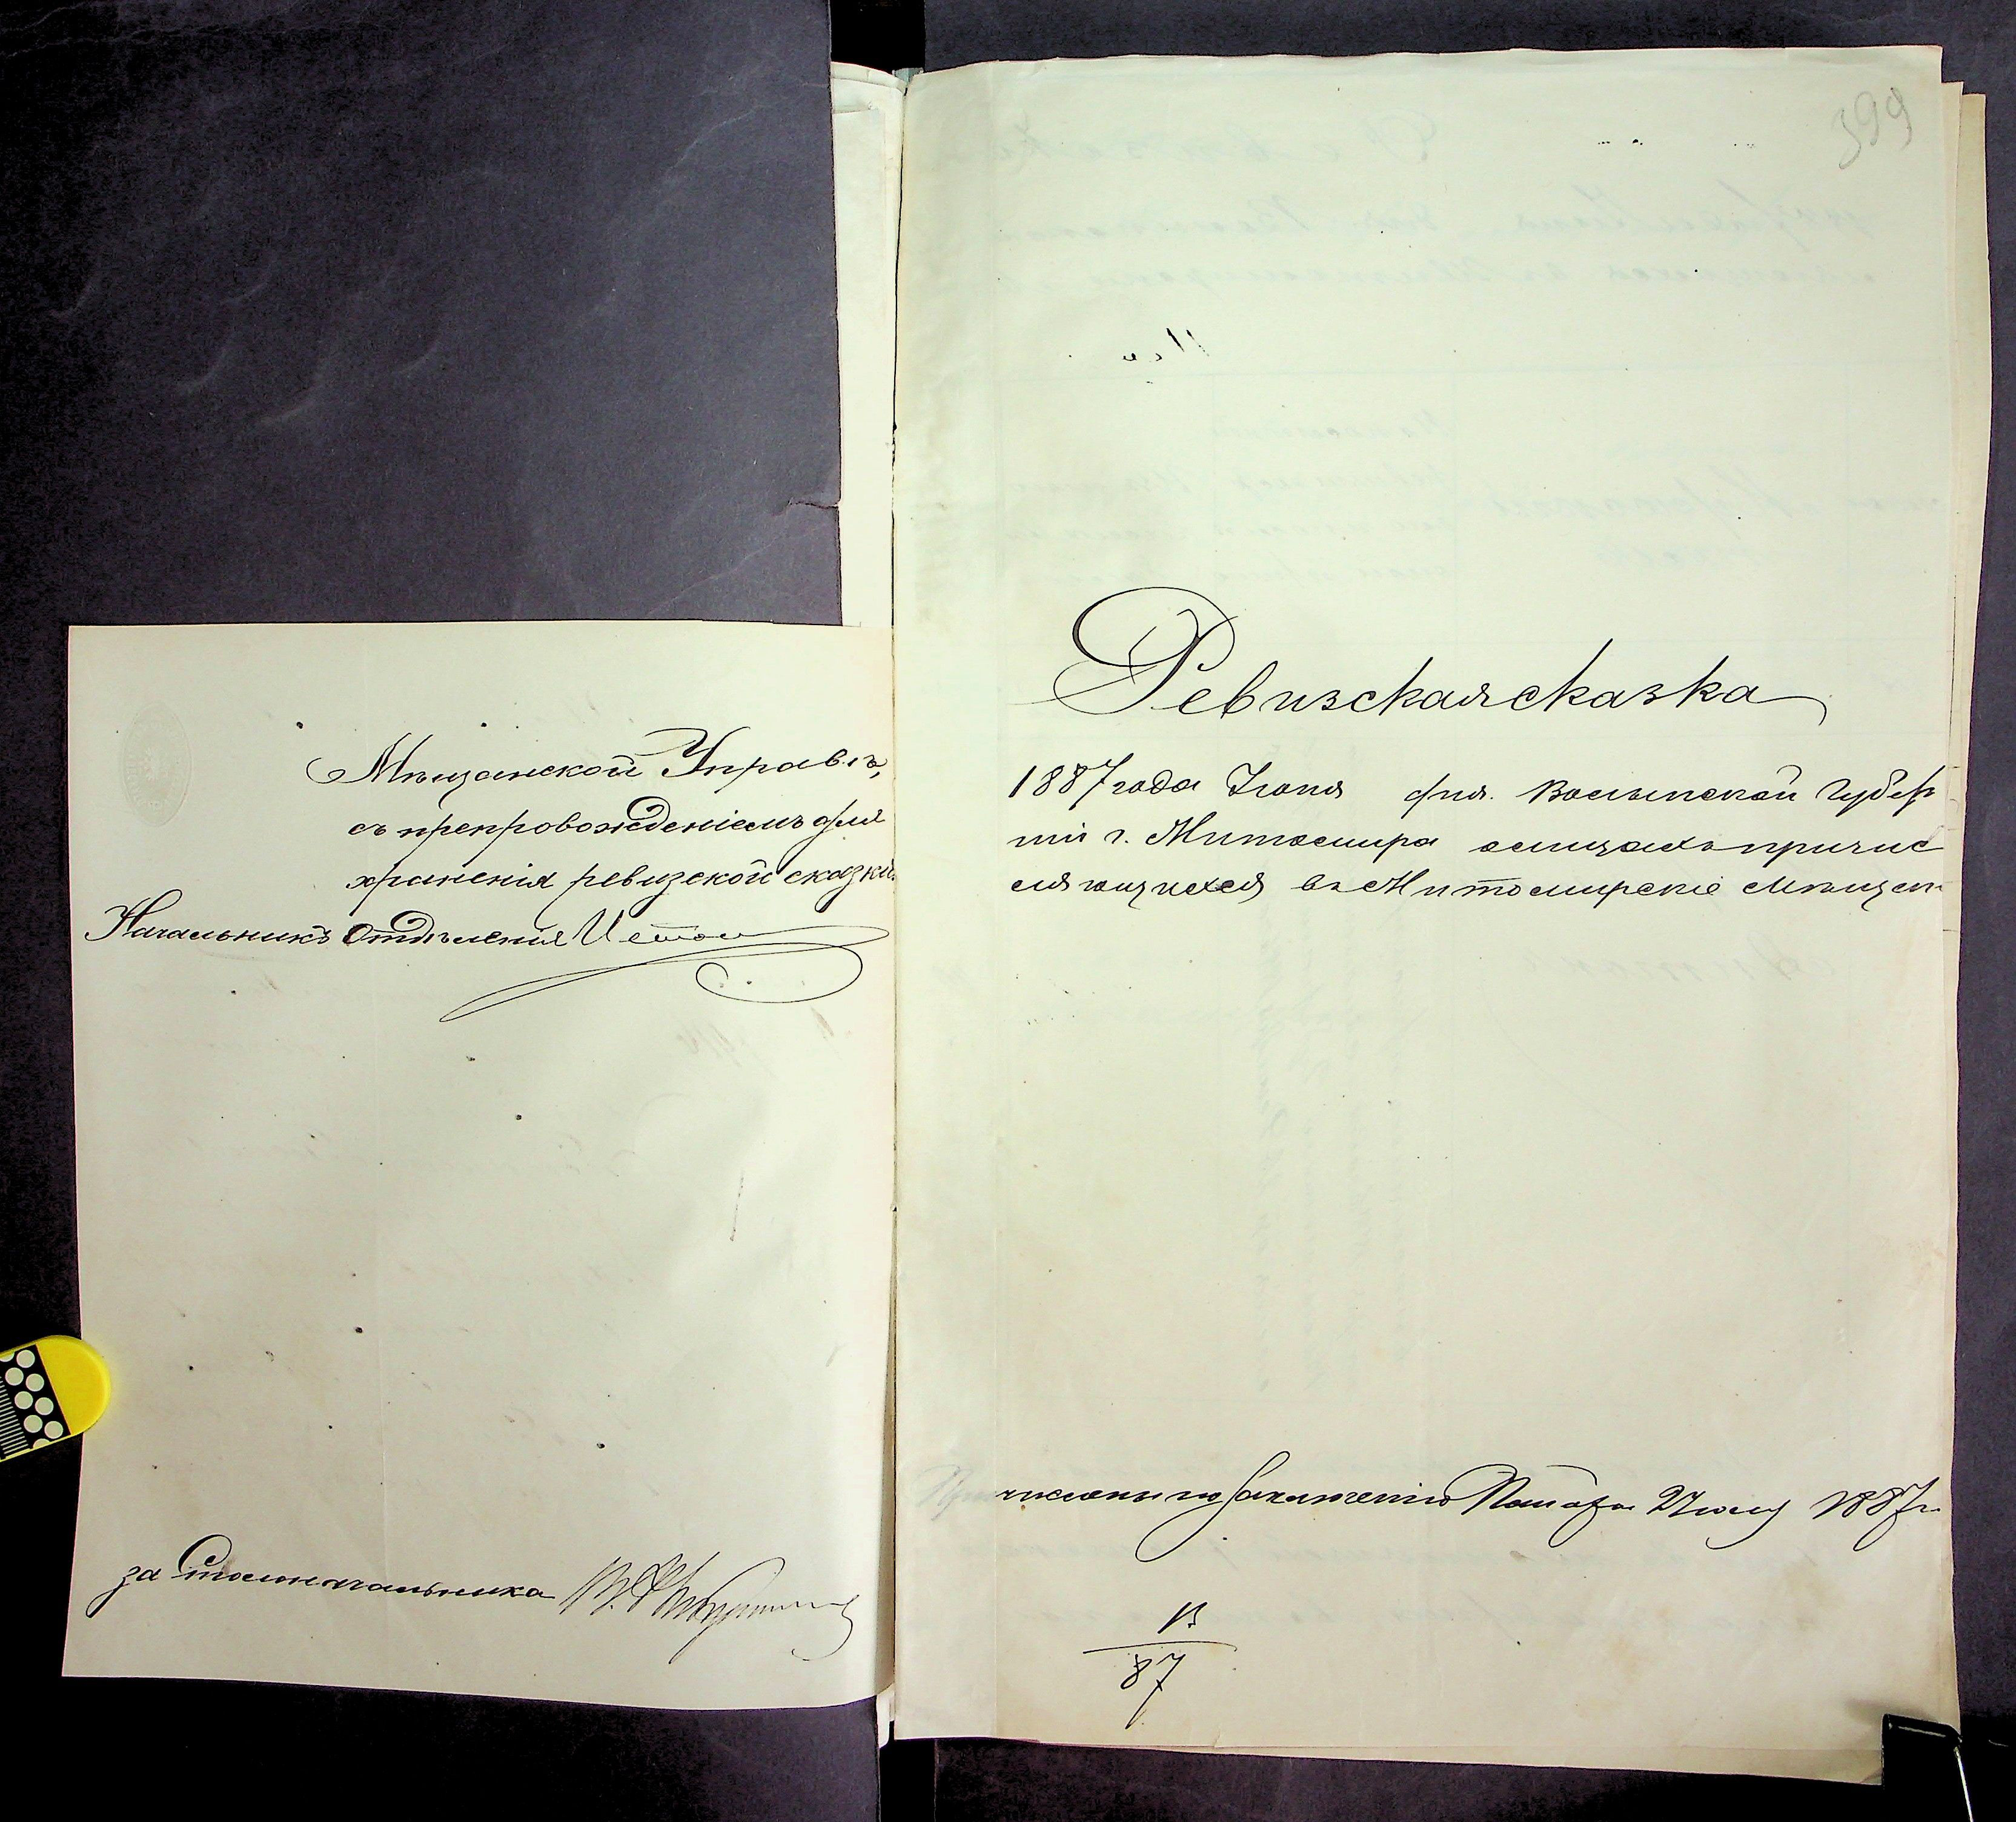 Мѣщанской Управѣ,
съ препровожденіемъ для
храненія ревизской сказки.
Начальникъ Отдѣленія
за Столоначальника
399
Ревизская сказка
1887 года Іюня дня. Волынской Губер
ніи г. Житомира о лицахъ причис
ляющихся въ Житомирскіе мѣщан
числены по заключенію Палаты 1887 г.
87